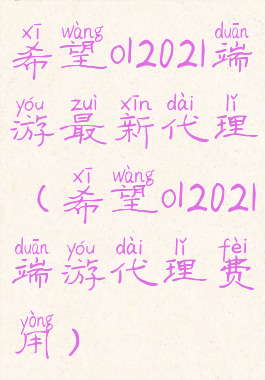 xī wàng duān
希望ol2021端
yóu zuì xīn dài lǐ
游最新代理
xī wàng
（希望ol2021
duān yóu dài lǐ fèi
端游代理费
yòng
用）